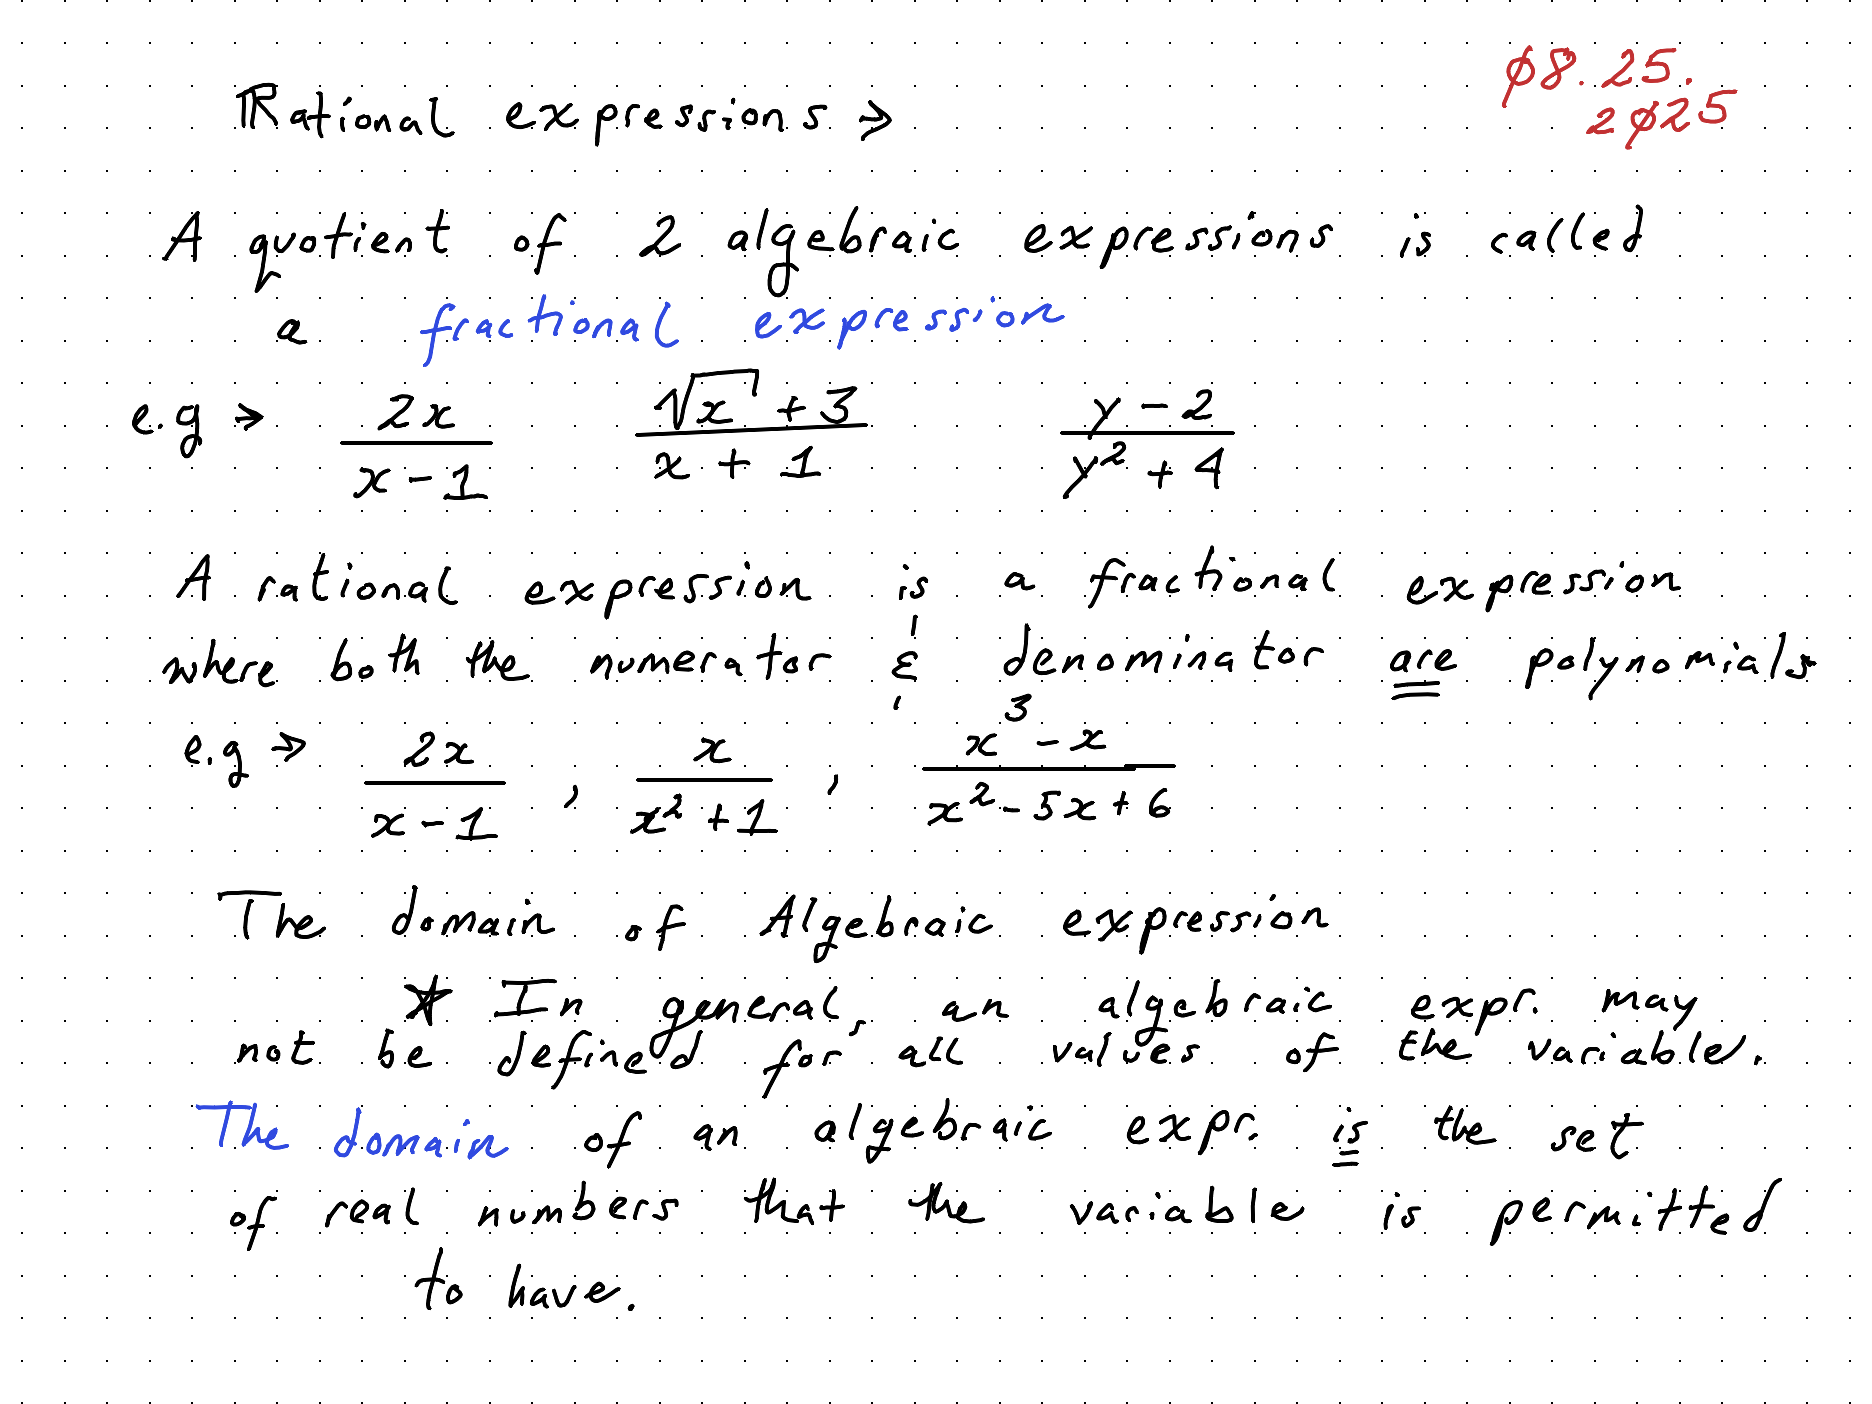 Rational expressions →
ø8.25.
2ø25
A quotient of 2 algebraic expressions is called
a fractional expression
e.g → 2x / x - 1   √x + 3 / x + 1   y - 2 / y² + 4
A rational expression is a fractional expression
where both the numerator & denominator are polynomials
e.g → 2x / x - 1 , x / x² + 1 , x³ - x / x² - 5x + 6
The domain of Algebraic expression
★ In general, an algebraic expr. may
not be defined for all values of the variable.
The domain of an algebraic expr. is the set
of real numbers that the variable is permitted
to have.